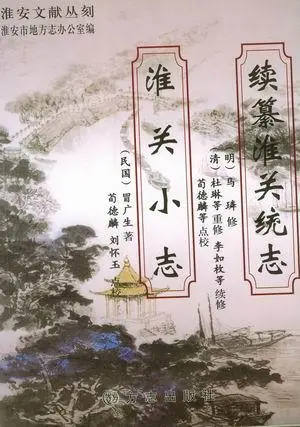 淮安文献丛刻
淮安市地方志办公室编
续纂淮关统志
(明)马麟修
(清)杜琳等重修 李如枚等续修
荀德麟等点校
淮关小志
(民国)冒广生著
荀德麟 刘怀玉 点校
方志出版社